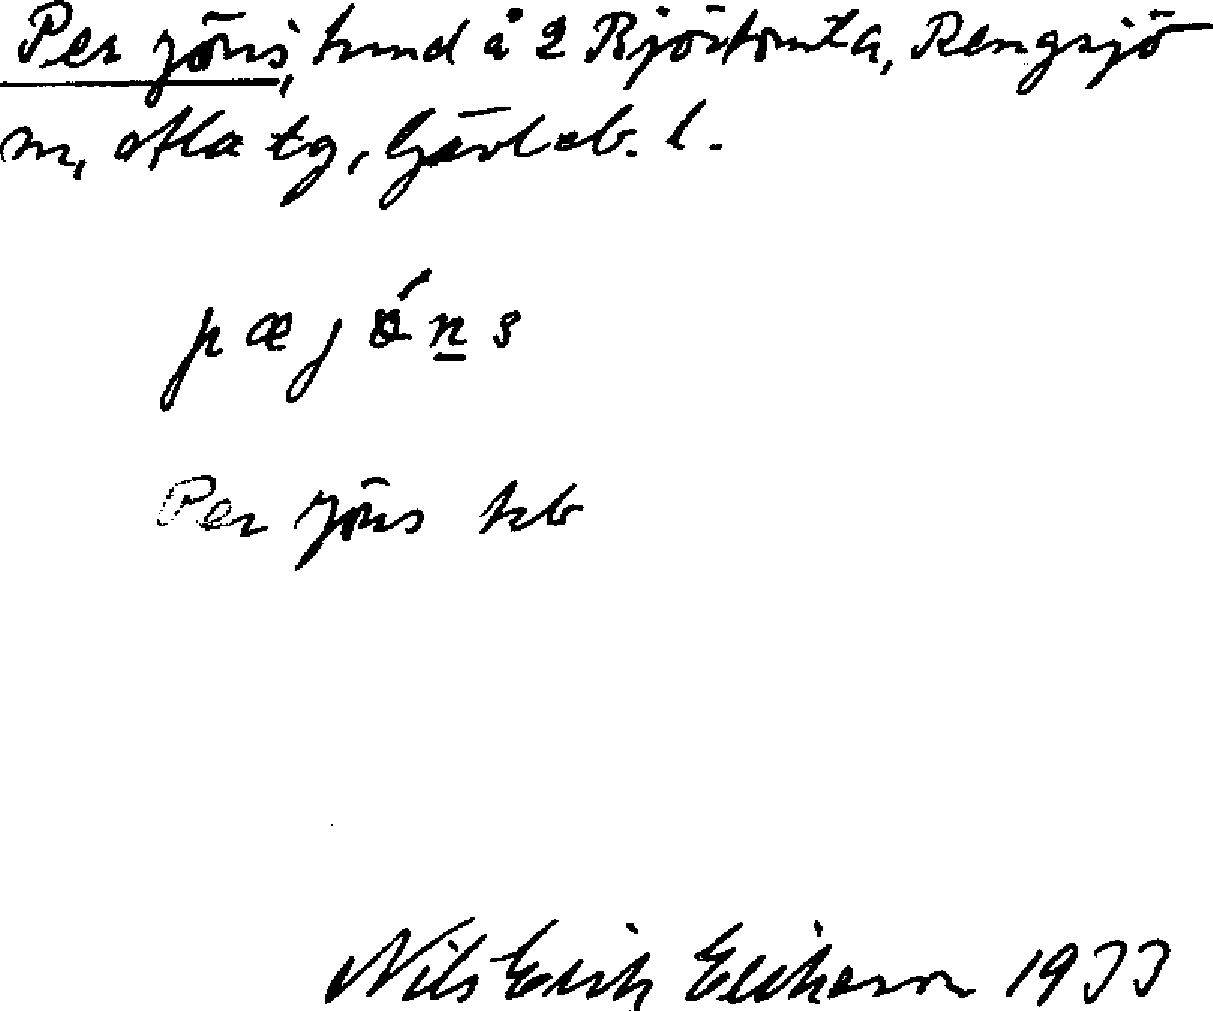 Per Jöns, hmd å 2 Björtomta, Rengsjö
sn, Ala tg, Gävleb. l.
pæjö́n̲s
Per Jöns kb
Nils Erik Eriksson 1933